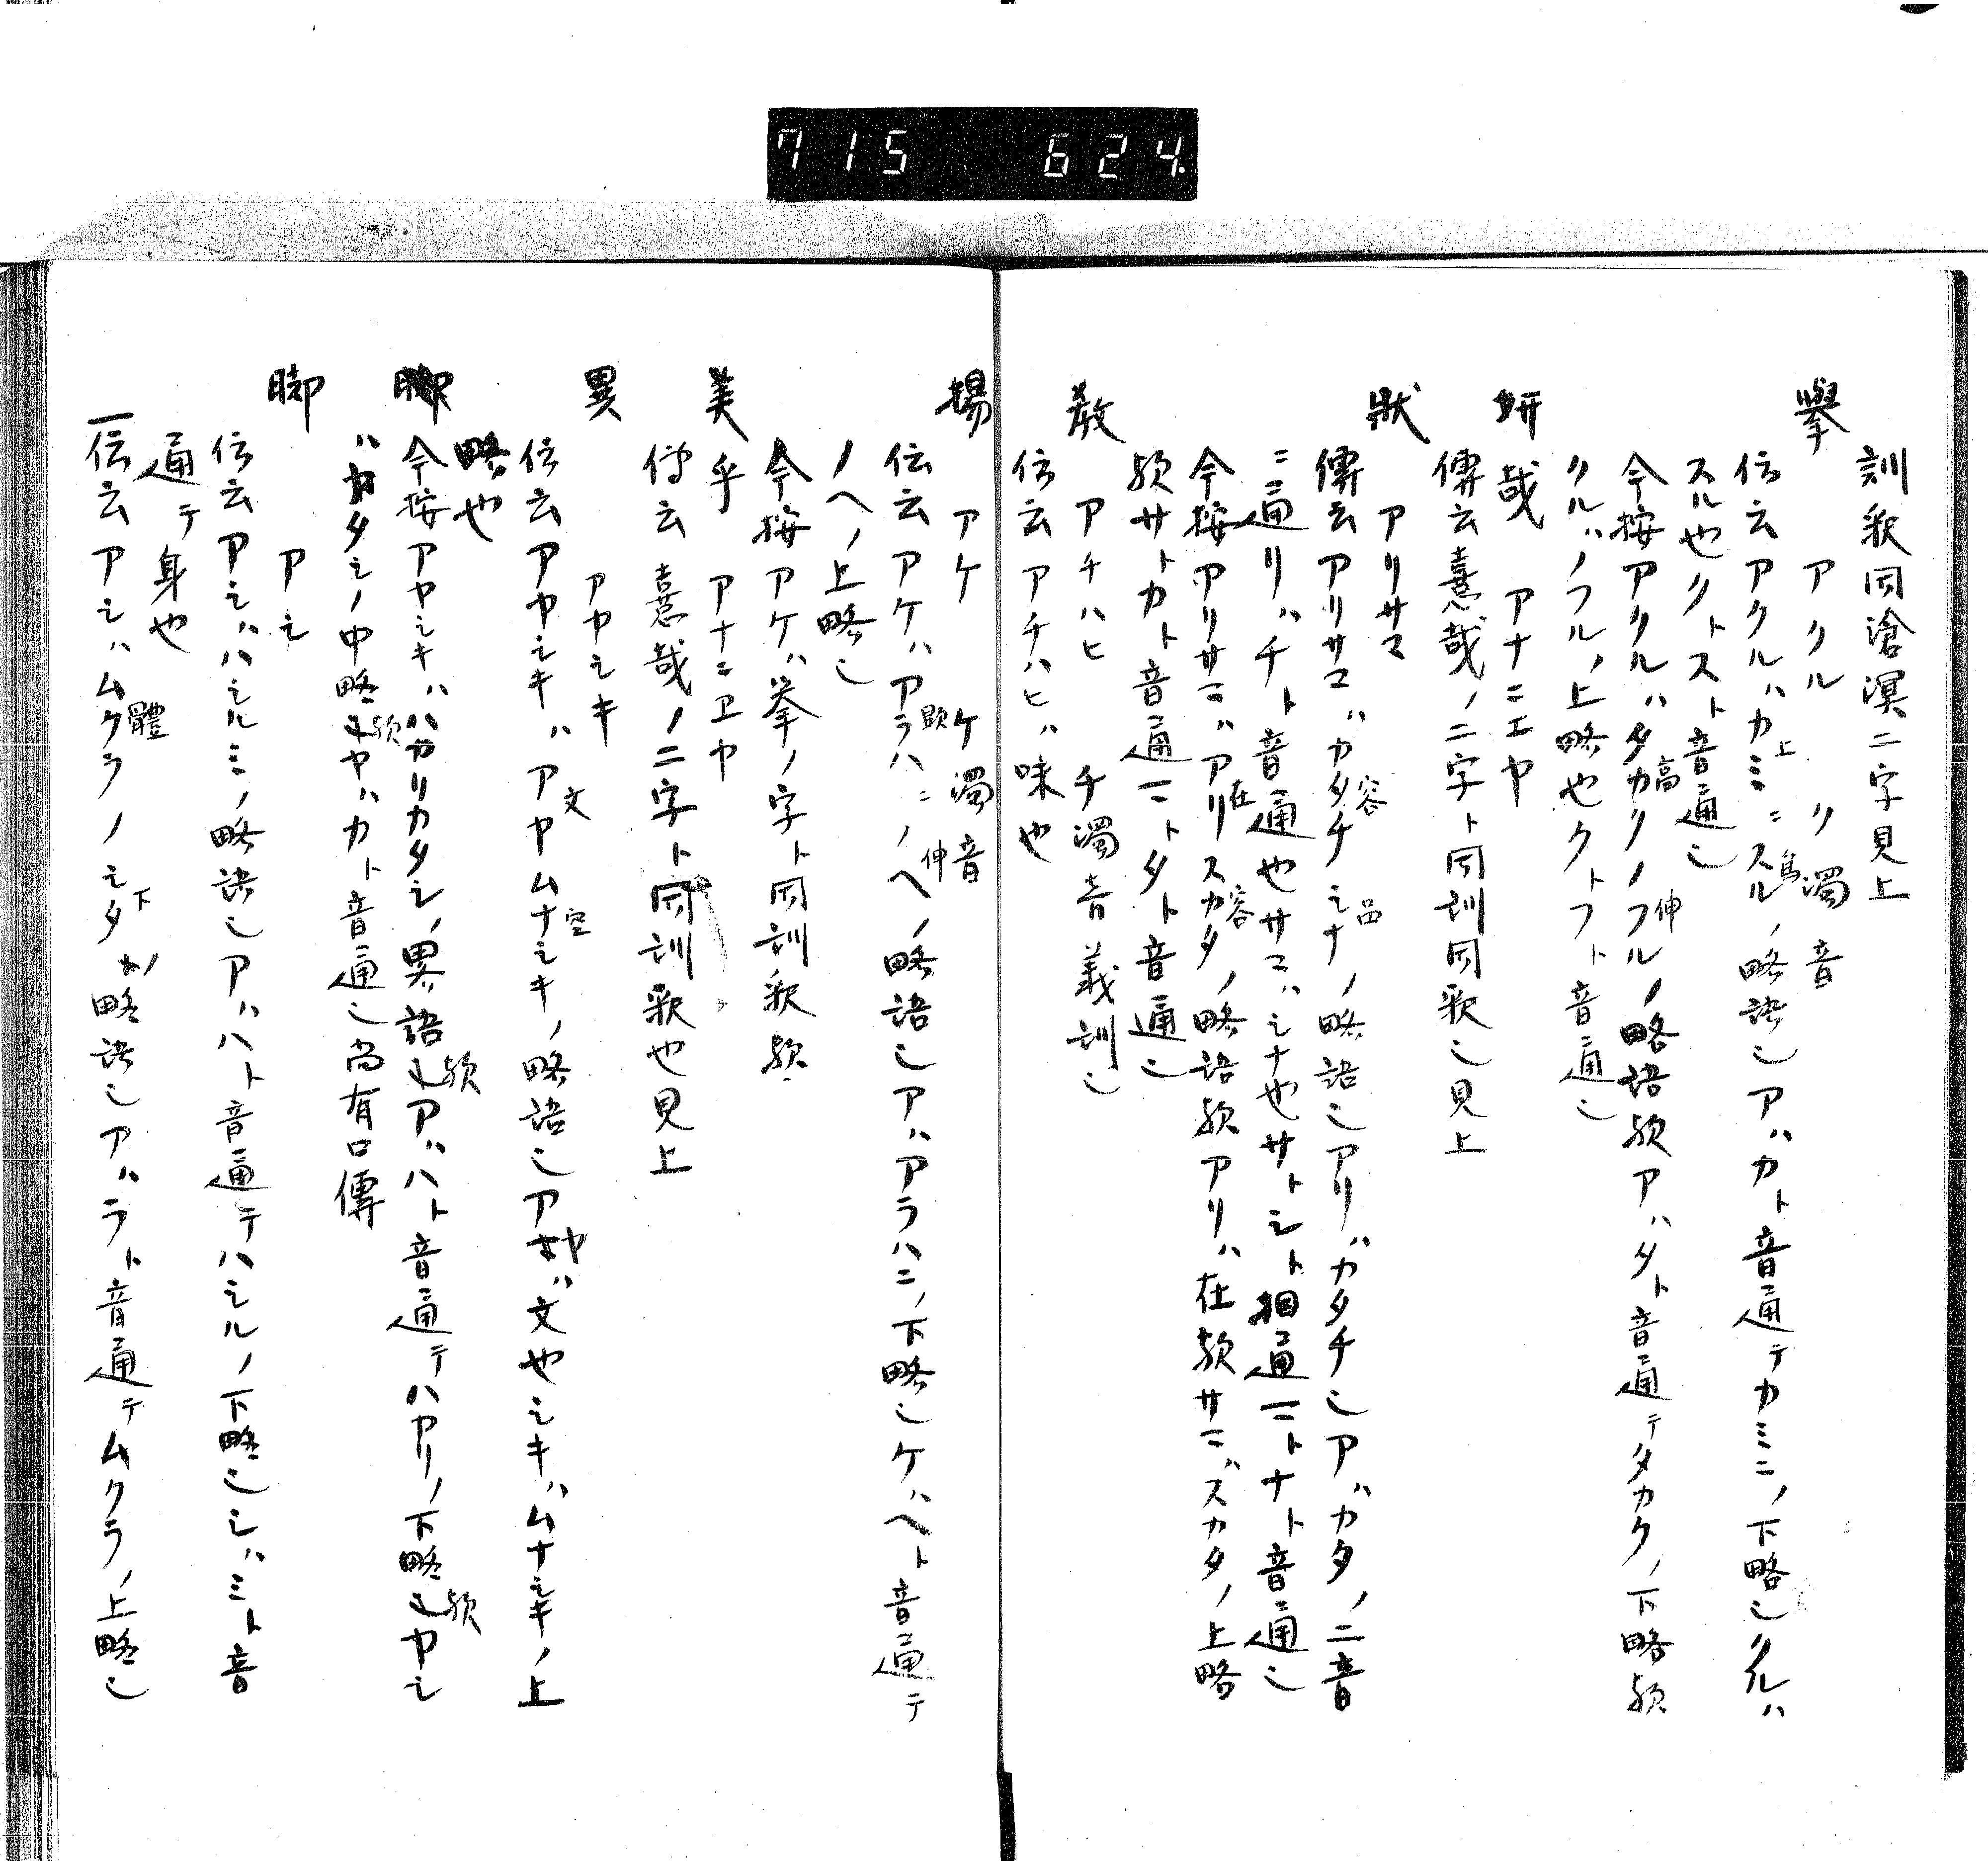 715 624
訓釈同滄溟二字見上
擧 アクル ク濁音
伝云アクルハカミ上ニスル為ノ略語也アハカト音通テカミニノ下略也クルハ
スル也クトスト音通也
今按アクルハタカク高ノフル伸ノ略語欤アハタト音通テタカクノ下略欤
クルハノフルノ上略也クトフト音通也
妍哉 アナニエヤ
傳云憙哉ノ二字ト同訓同釈也見上
狀 アリサマ
傳云アリサマハカタチ容シナ品ノ略語也アリハカタチ也アハカタノ二音
ニ通リハチト音通也サマハシナ也サトシト相通マトナト音通也
今按アリサマハアリ在スカタ容ノ略語欤アリハ在欤サマハスカタノ上略
欤サトカト音通マトタト音通也
教 アチハヒ チ濁音義訓也
伝云アチハヒハ味也
揚 アケ ケ濁音
伝云アケハアラハ顕ニノヘ伸ノ略語也アハアラハニノ下略也ケハヘト音通テ
ノヘノ上略也
今按アケハ挙ノ字ト同訓釈欤
美乎 アナニヱヤ
傳云憙哉ノ二字ト同訓釈也見上
異 アヤシキ
伝云アヤシキハアヤ文ムナシキ空ノ略語也アヤハ文也シキハムナシキノ上
略也
今按アヤシキハハカリカタシノ畧語欤アハハト音通テハカリノ下略欤ヤシ
ハカタシノ中略欤ヤハカト音通也尚有口傳
脚 アシ
伝云アシハハシルミノ略語也アハハト音通テハシルノ下略也シハミト音
通テ身也
一伝云アシハムクラ體ノシタ下ノ略語也アハラト音通テムクラノ上略也